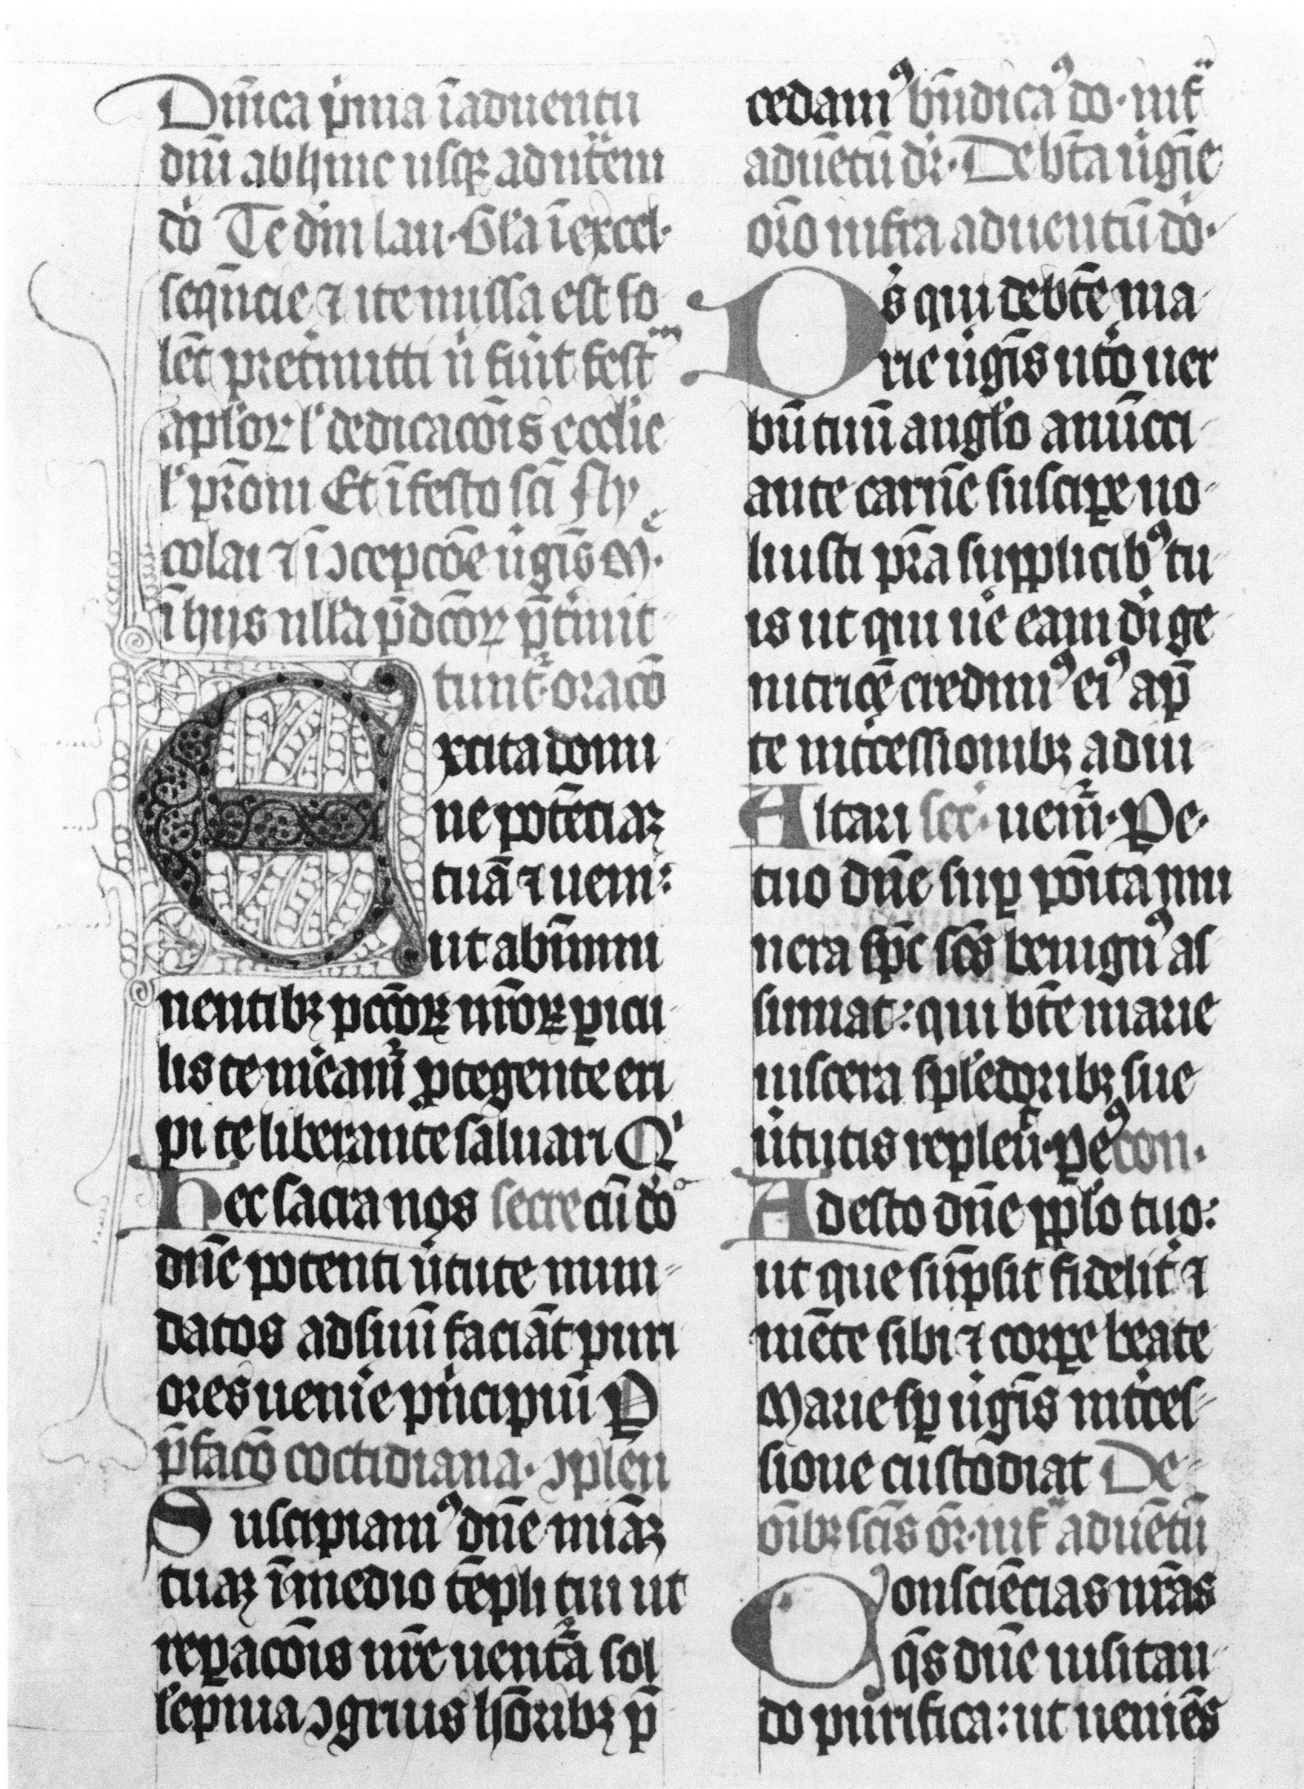 Dn̄ica p̓ma ī aduentu
dn̄i ab hinc usqꝫ ad nat̄em
do Te dm̄ lau· Gl̓a ī excel·
seqn̄cie ⁊ ite missa est so
lēt pret̓mitti n̓ fūit fest
apl̓oꝝ l̓ dedicacōis ecclie
l̓ pr̄oni Et ī festo sc̄i Ny
colai ⁊ ī ꝯcepcōe ūgis M·
ī hijs ulla p̄dc̄oꝝ p̄t̓mit
tunt᷑· oracō
Excita domi
ne potēciaꝫ
tuā ⁊ ueni:
ut ab īmi
nentibꝫ pcc̄oꝝ nr̄oꝝ ꝑicu
lis te m̓eam᷑ ꝓtegente eri
pi te liberante saluari Q̓
Hec sacra nos secre cū do
dn̄e potenti ūtute mun-
datos ad suū faciāt puri
ores uenīe pn̓cipiū P
p̄facō coctidiana· ꝯplen
Suscipiamꝰ dn̄e mīaꝫ
tuaꝫ ī medio tēpli tui ut
reꝑacōis nr̄e uent᷑a sol
lepnia ꝯgruis hōribꝫ p̄
cedamꝰ bn̄dicaꝰ do· inf̄
aduētū dr̄· De bt̄a ūgīe
orō infra aduentū do·
Ds̓ qui de bt̄e ma
rie ūgīs ut̓o uer
bū tuū angl̓o anūcci
ante carnē susciꝑe uo
luisti pr̄a supplicibꝰ tu
is ut qui ue̓ eam di ge
nitricē credimꝰ eiꝰ ap̄
te int̓cessionibꝫ adiu
Altari sec̓· uem᷑· Pe·
tuo dn̄e suꝑ pōita mu
nera sp̄c sc̄s benignꝰ as
sumat: qui bt̄e marie
uiscera splēdoribꝫ sue
ūtutis repleū· ꝑeꝰ con·
Adesto dn̄e ppl̓o tuo:
ut que sūpsit fidelit̓ ⁊
mēte sibi ⁊ corꝑe beate
Marie sꝑ ūgīs int̓ces-
sione custodiat De
oībꝫ sc̄is or̄· inf̄ aduētū
Consciēcias nr̄as
qs̄ dn̄e uisitan
do purifica: ut ueniēs